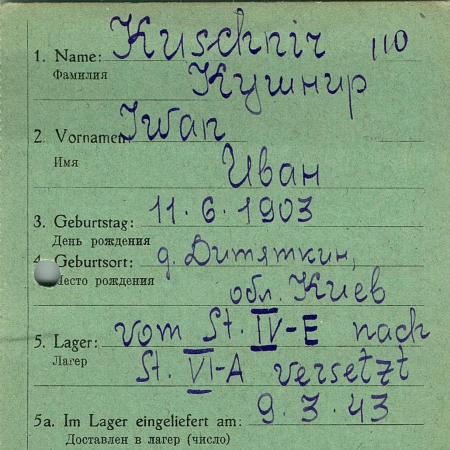 Kuschnir 110
1. Name:
Фамилия
Кушнир
2. Vornamen Iwan
Имя
Иван
3. Geburtstag: 11.6.1903
День рождения
4. Geburtsort: д. Дитяткин,
Место рождения
обл. Киев
5. Lager: vom St. IV-E nach
Лагер
St. VI-A versetzt
5a. Im Lager eingeliefert am: 9.3.43
Доставлен в лагер (число)